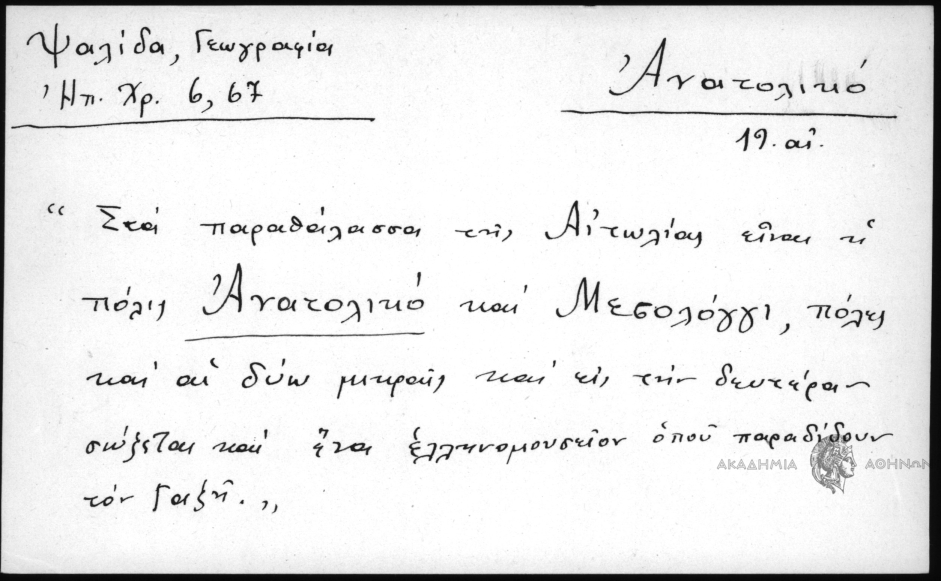 Ψαλίδα, Γεωγραφία
Ἠπ. Χρ. 6, 67
Ἀνατολικό
19. αἰ.
“ Στά παραθάλασσα τῆς Αἰτωλίας εἶναι ἡ
πόλις Ἀνατολικό καί Μεσολόγγι, πόλεις
καί αἱ δύω μικραῖς καί εἰς τήν δευτέραν
σώζεται καί ἕνα ἑλληνομουσεῖον ὁποῦ παραδίδουν
τόν Γαζῆ. „
ΑΚΑΔΗΜΙΑ ΑΘΗΝΩΝ